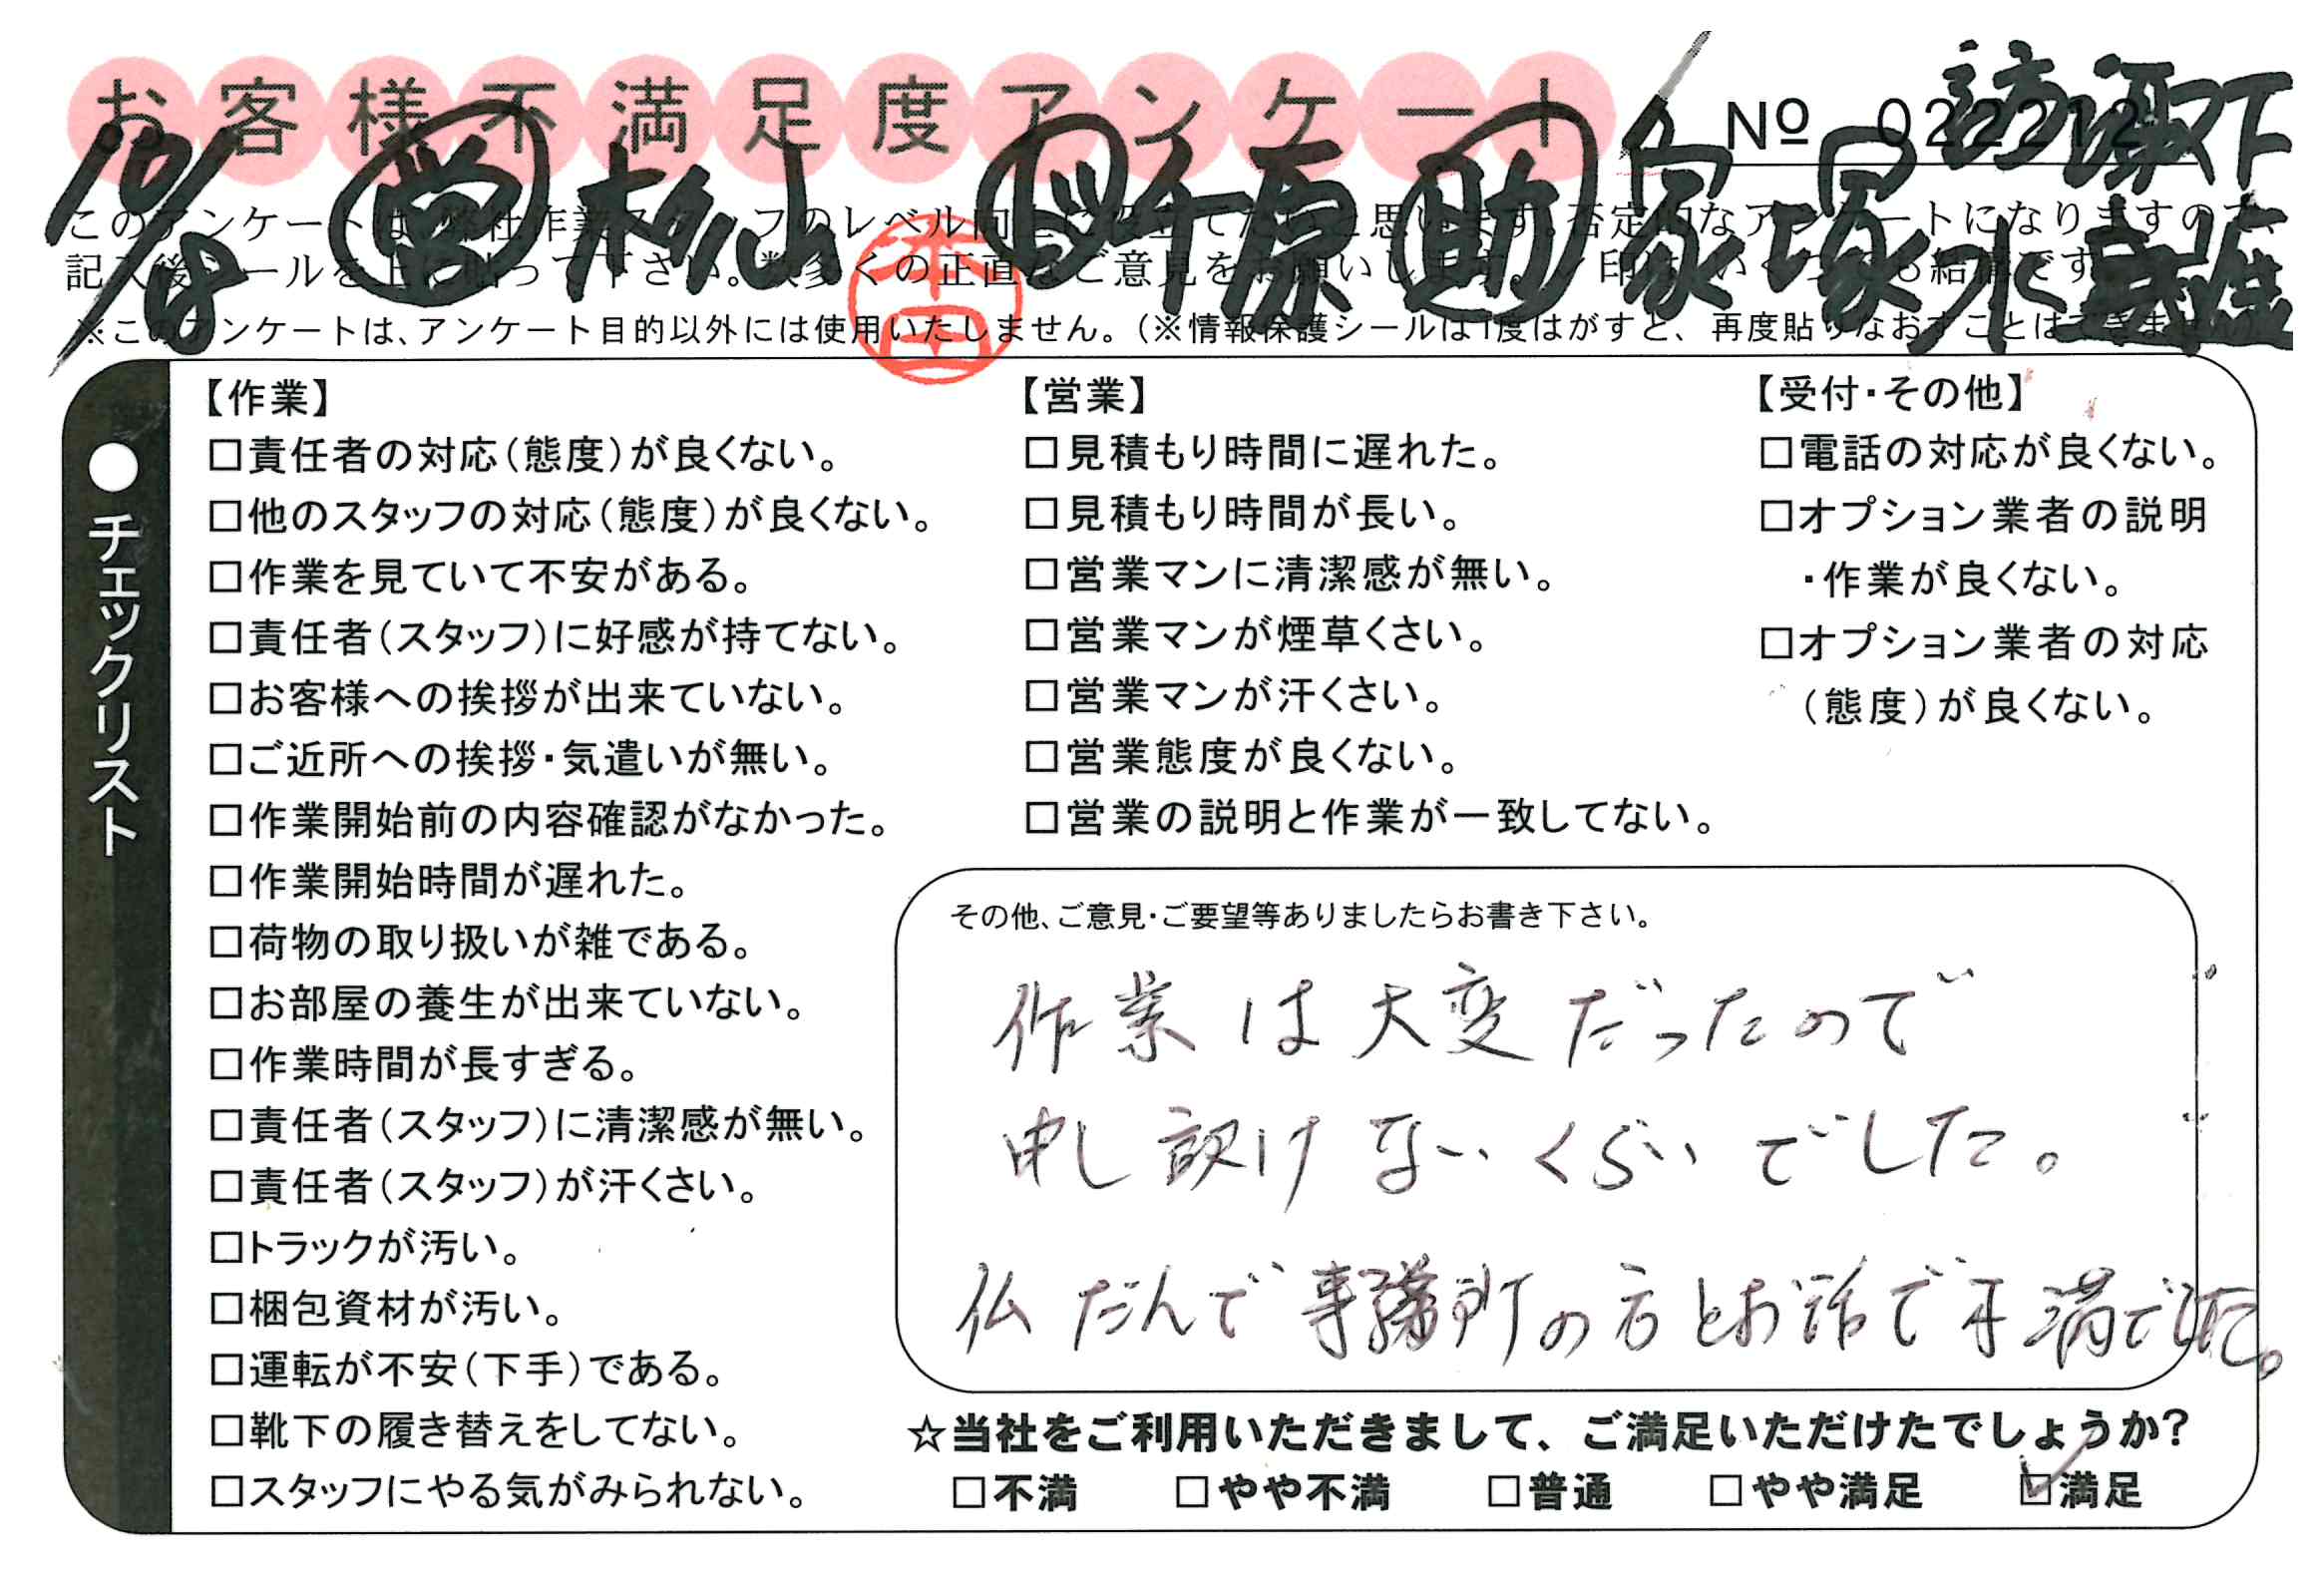 お客様不満足度アンケート
№ 022212
10/8 営 杉山 図 千原 助 家塚
このアンケートは、弊社作業スタッフのレベル向上に役立てたいと思います。否定的なアンケートになりますので、
記入後シールを上に貼って下さい。数多くの正直なご意見をお願いします。✓印はいくつでも結構です。
※このアンケートは、アンケート目的以外には使用いたしません。(※情報保護シールは1度はがすと、再度貼りなおすことはできません)
本田
●チェックリスト
【作業】
□責任者の対応(態度)が良くない。
□他のスタッフの対応(態度)が良くない。
□作業を見ていて不安がある。
□責任者(スタッフ)に好感が持てない。
□お客様への挨拶が出来ていない。
□ご近所への挨拶・気遣いが無い。
□作業開始前の内容確認がなかった。
□作業開始時間が遅れた。
□荷物の取り扱いが雑である。
□お部屋の養生が出来ていない。
□作業時間が長すぎる。
□責任者(スタッフ)に清潔感が無い。
□責任者(スタッフ)が汗くさい。
□トラックが汚い。
□梱包資材が汚い。
□運転が不安(下手)である。
□靴下の履き替えをしてない。
□スタッフにやる気がみられない。
【営業】
□見積もり時間に遅れた。
□見積もり時間が長い。
□営業マンに清潔感が無い。
□営業マンが煙草くさい。
□営業マンが汗くさい。
□営業態度が良くない。
□営業の説明と作業が一致してない。
【受付・その他】
□電話の対応が良くない。
□オプション業者の説明
・作業が良くない。
□オプション業者の対応
(態度)が良くない。
その他、ご意見・ご要望等ありましたらお書き下さい。
作業は大変だったので
申し訳けないくらいでした。
仏だんで事務所の方とお話で不満でした。
☆当社をご利用いただきまして、ご満足いただけたでしょうか?
□不満 □やや不満 □普通 □やや満足 ☑満足